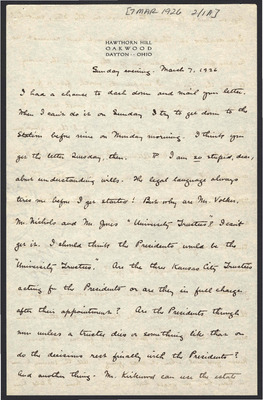 [7 MAR 1926 2/1A]
HAWTHORN HILL
OAKWOOD
DAYTON OHIO
Sunday evening. March 7, 1926
I had a chance to dash down and mail your letter.
When I can't do it on Sunday I try to get down to the
Station before nine on Monday morning. I think you
get the letter Tuesday, then. I am so stupid, dear,
about understanding wills. The legal language always
tires me before I get started! But why are Mr. Volker,
Mr. Nichols and Mr. Jones "University Trustees"? I can't
get it. I should think the Presidents would be the
"University Trustees." Are the three Kansas City Trustees
acting for the Presidents or are they in full charge
after their appointment? Are the Presidents through
now unless a trustee dies or something like that or
do the decisions rest finally with the Presidents?
And another thing. Mr. Kirkwood can use the estate